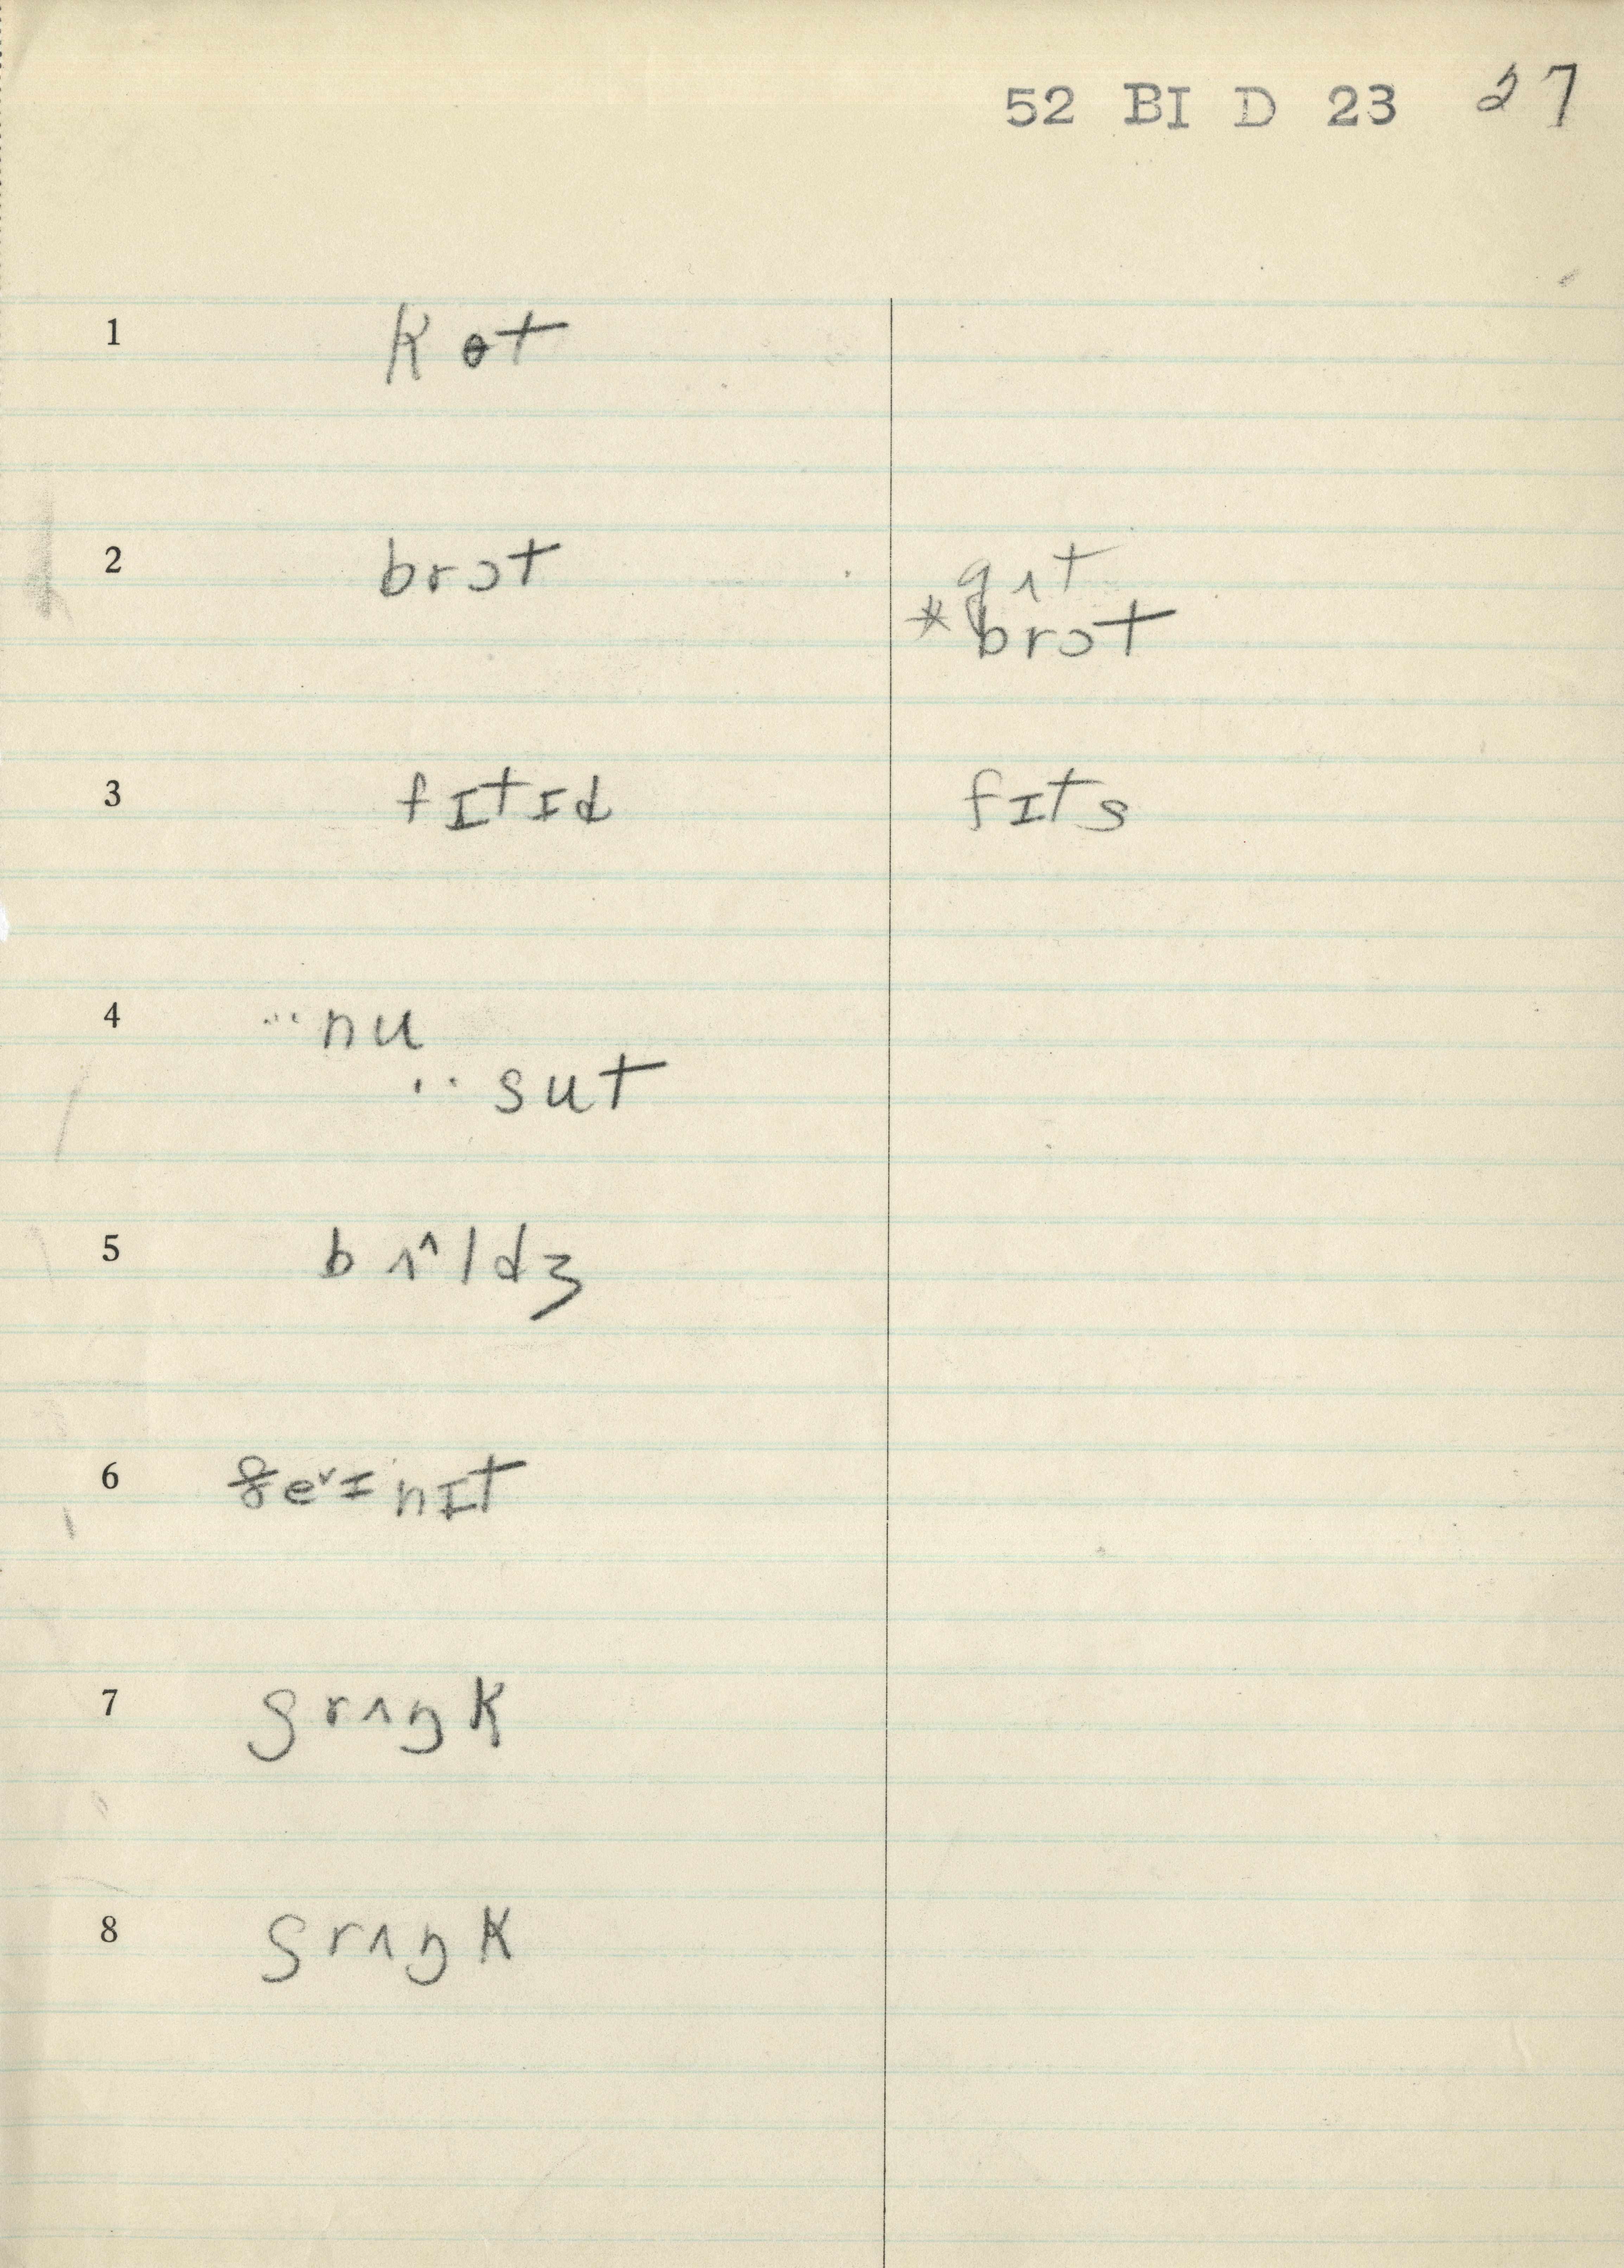 52 BI D 23 27
1 kɵt
2 brɔt gʌt
* brɔt
3 fɪtɪd fɪts
4 ··· nu
·· sut
5 bʌ^ldʒ
6 ɪ nɪt
7 ʃrʌŋk
8 ʃrʌŋk